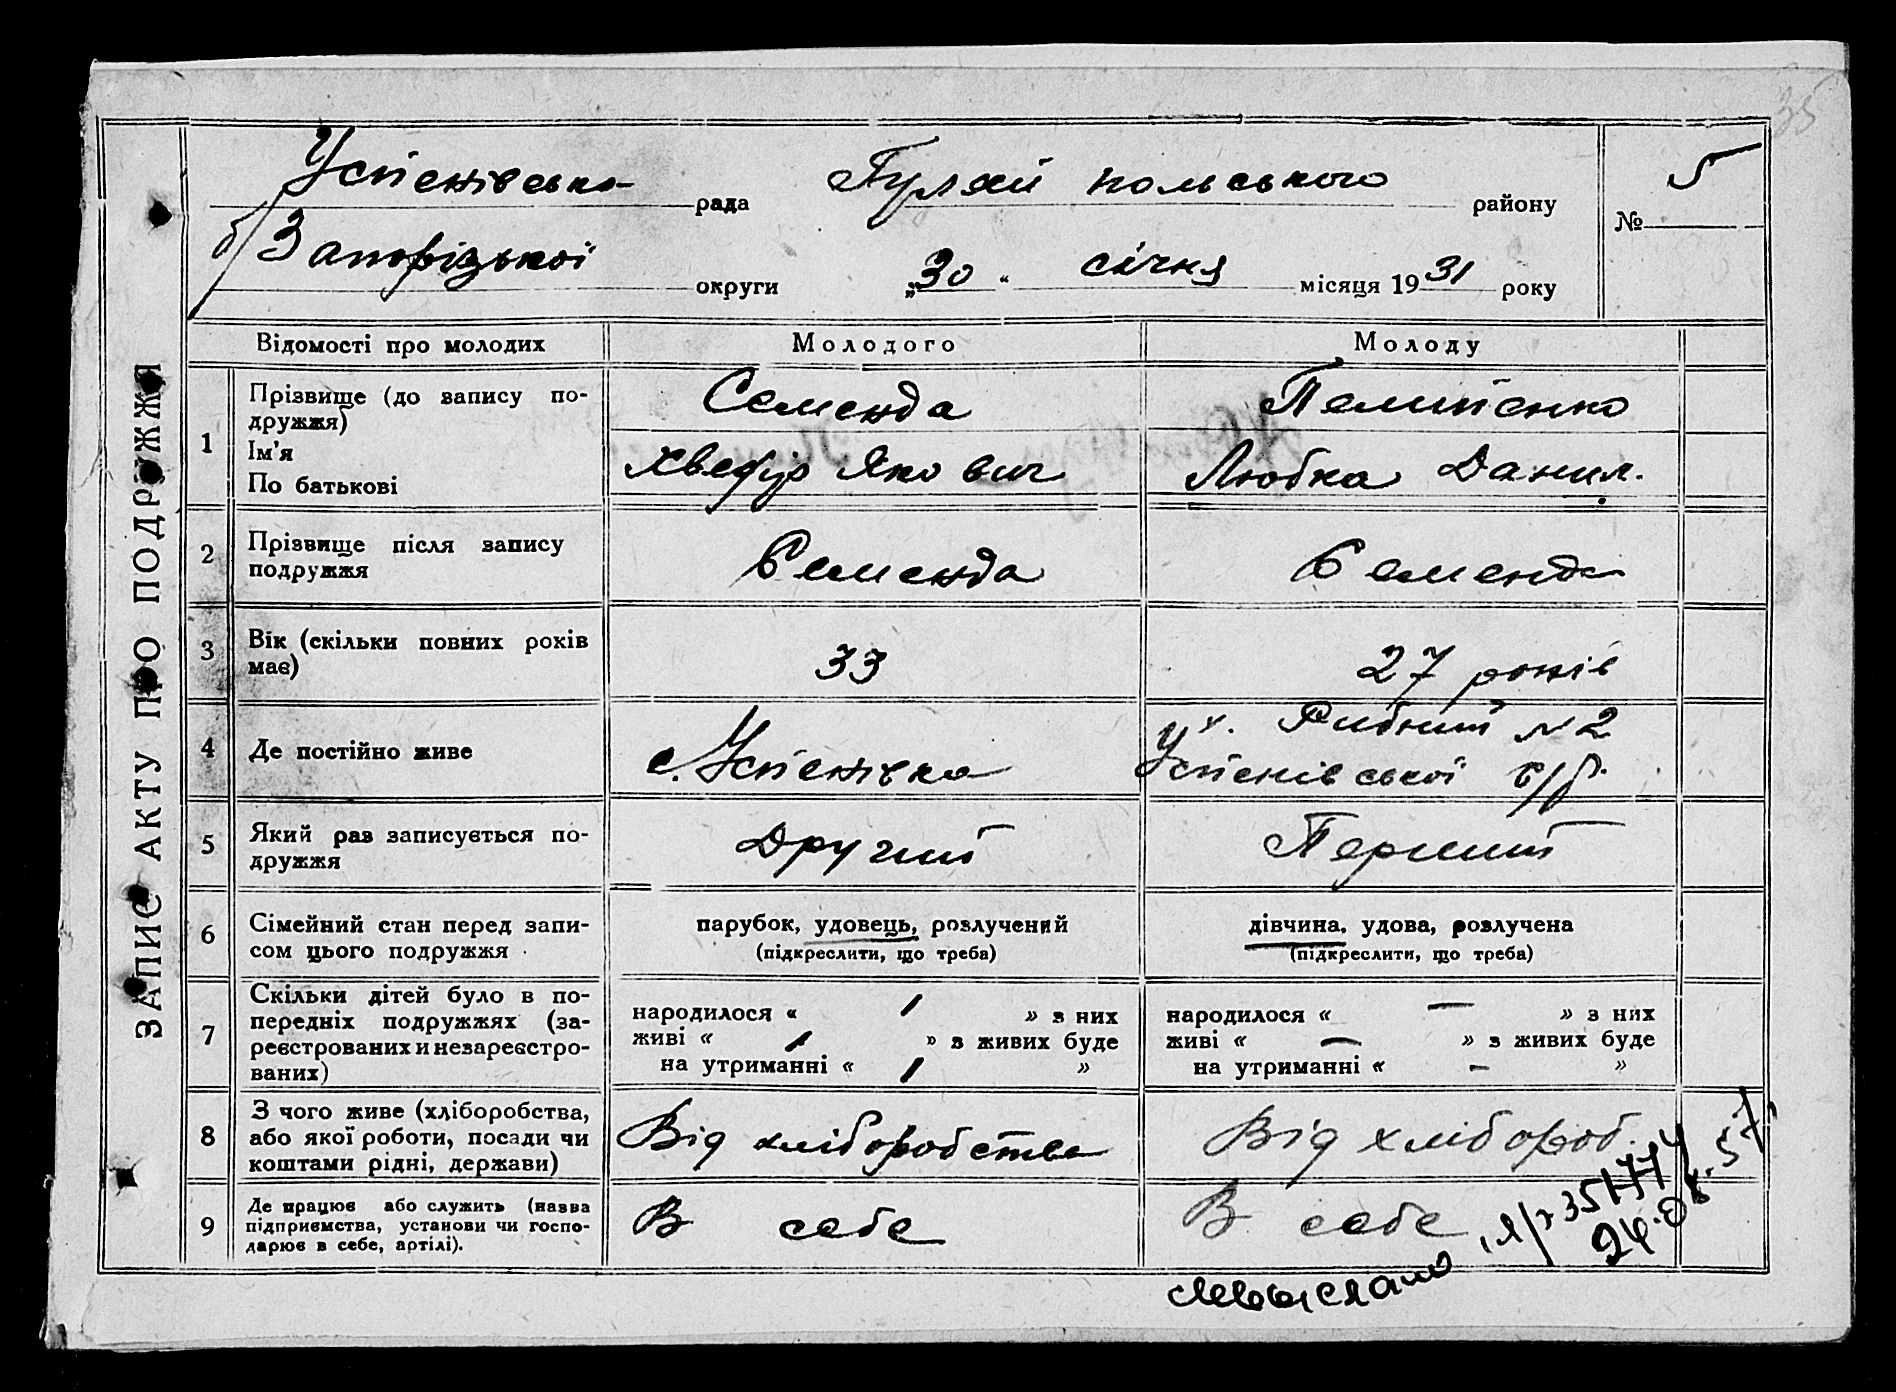 35
Успенівська рада Гуляй польського району № 5
б/Запорізької округи „30“ січня місяця 1931 року
ЗАПИС АКТУ ПРО ПОДРУЖЖЯ
Відомості про молодих Молодого Молоду
1 Прізвище (до запису по-
дружжя) Семенда Пелипенко
Ім'я
По батькові Хведір Якович Любка Данил.
2 Прізвище після запису
подружжя Семенда Семенда
3 Вік (скільки повних років
має) 33 27 років
4 Де постійно живе с. Успенівка ух. Рибний №2
Успенівської с/р.
5 Який раз записується по-
дружжя Другий Перший
6 Сімейний стан перед запи-
сом цього подружжя парубок, удовець, розлучений дівчина, удова, розлучена
(підкреслити, що треба) (підкреслити, що треба)
7 Скільки дітей було в по-
передніх подружжях (за-
реєстрованих и незареєстро-
ваних)
народилося « 1 » з них
живі « 1 » з живих буде
на утриманні « 1 »
народилося « — » з них
живі « — » з живих буде
на утриманні « - »
8 З чого живе (хліборобства,
або якої роботи, посади чи
коштами рідні, держави) Від хліборобства Від хлібороб.
9 Де працює або служить (назва
підприємства, установи чи госпо-
дарює в себе, артілі). В себе В себе
24.08.57.